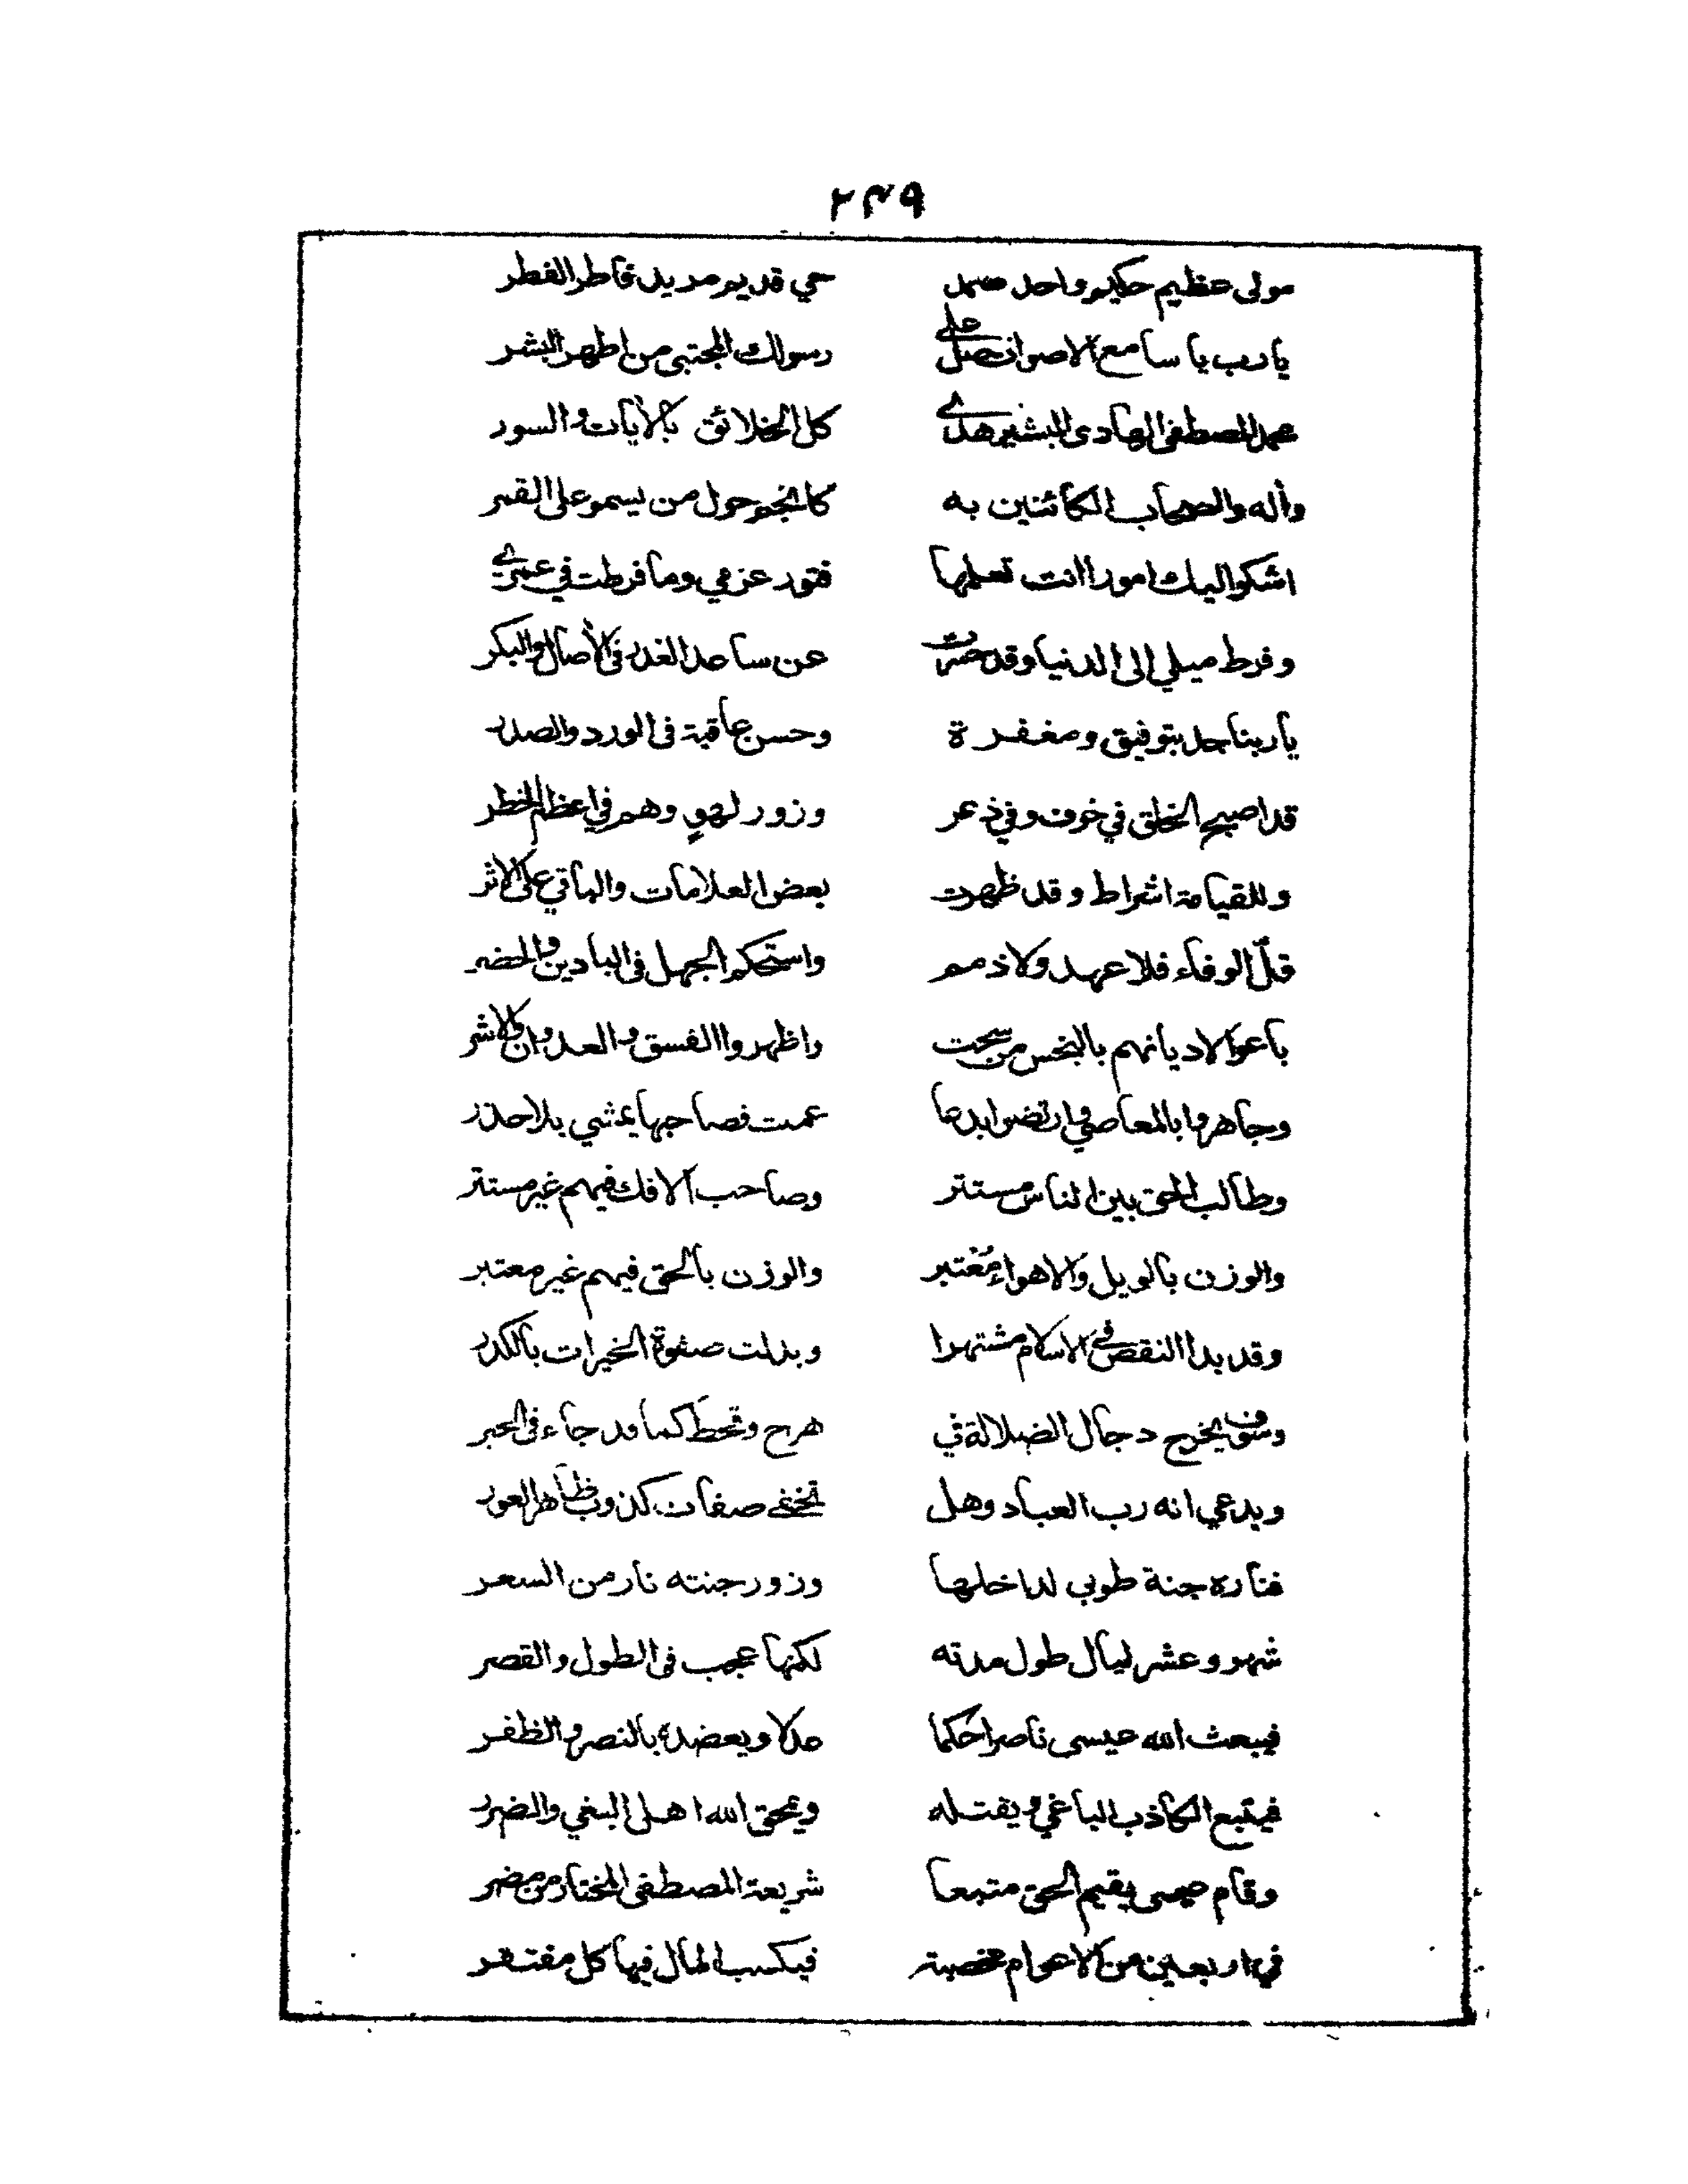 ٢٤٩
مولى عظيم حكيم واحد صمد حي قدير مريد فاطر الفطر
يا رب يا سامع الاصوات صل على رسولك المجتبى من اطهر البشر
محمد المصطفى الهادى البشير هدى كل الخلائق بالأيات والسور
وأله والصحاب الكائنين به كانجم حول من يسمو على القمر
اشكوا اليك امورا انت تعلمها فتور عزمي وما فرطت في عمري
وفرط ميلي إلى الدنيا وقد حسرت عن ساعد الغدر في الأصال والبكر
يا ربنا جد بتوفيق ومغفرة وحسن عاقبة في الورد والصدر
قد اصبح الخلق في خوف وفي ذعر وزور لهوٍ وهم في اعظم الخطر
وللقيامة اشراط وقد ظهرت بعض العلامات والباقي على الاثر
قلّ الوفاء فلا عهد ولا ذمم واستحكم الجهل في البادين والحضر
باعوا الاديانهم بالبخس من سحت واظهروا الفسق والعدوان والاشر
وجاهروا بالمعاصي وارتضوا بدعا عمت فصاحبها يمشي بلا حذر
وطالب الحق بين الناس مستتر وصاحب الافك فيهم غير مستتر
والوزن بالويل والاهواء معتبر والوزن بالحق فيهم غير معتبر
وقد بدا النقص في الاسلام مشتهرا وبدلت صفوة الخيرات بالكدر
وسوف يخرج دجال الضلالة في هرج وقحط كما قد جاء في الخبر
ويدعي انه رب العباد وهل تخفى صفات كذوب ظاهر العور
فناره جنة طوبى لداخلها وزور جنته نار من السعر
شهر وعشر ليال طول مدته لكنها عجب في الطول والقصر
فيبعث الله عيسى ناصرا حكما عدلا ويعضده بالنصر والظفر
فيتبع الكاذب الباغي ويقتله ويمحق الله اهل البغي والضرر
وقام عيسى يقيم الحق متبعا شريعة المصطفى المختار من مضر
في اربعين من الاعوام مخصبة فيكسب المال فيها كل مفتقر